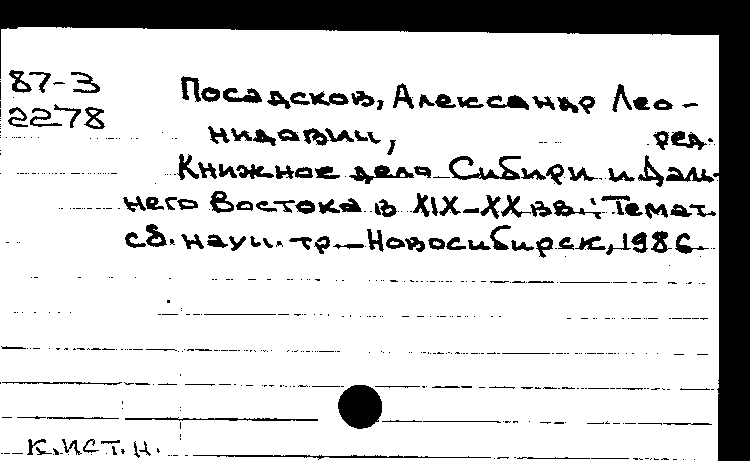 87-3
2278
Посадсков, Александр Лео-
нидович, ред.
Книжное дело Сибири и Даль-
него Востока в XIX-XX вв.: Темат.
сб. науч. тр. — Новосибирск, 1986.
к.ист.н.